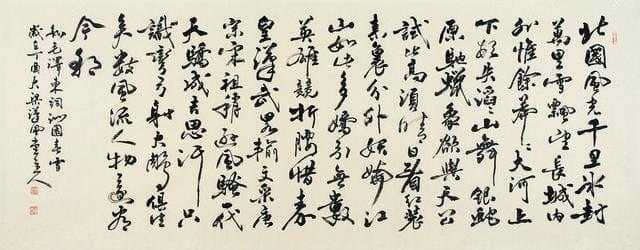 北國風光千里冰封
萬里雪飄望長城內
外惟餘莽々大河上
下頓失滔々山舞銀蛇
原馳蠟象欲與天公
試比高須晴日看紅裝
素裹分外妖嬈江
山如此多嬌引無數
英雄競折腰惜秦
皇漢武略輸文采唐
宗宋祖稍遜風騷一代
天驕成吉思汗只
識彎弓射大雕俱往
矣數風流人物還看
今朝
毛澤東詞沁園春雪
歲